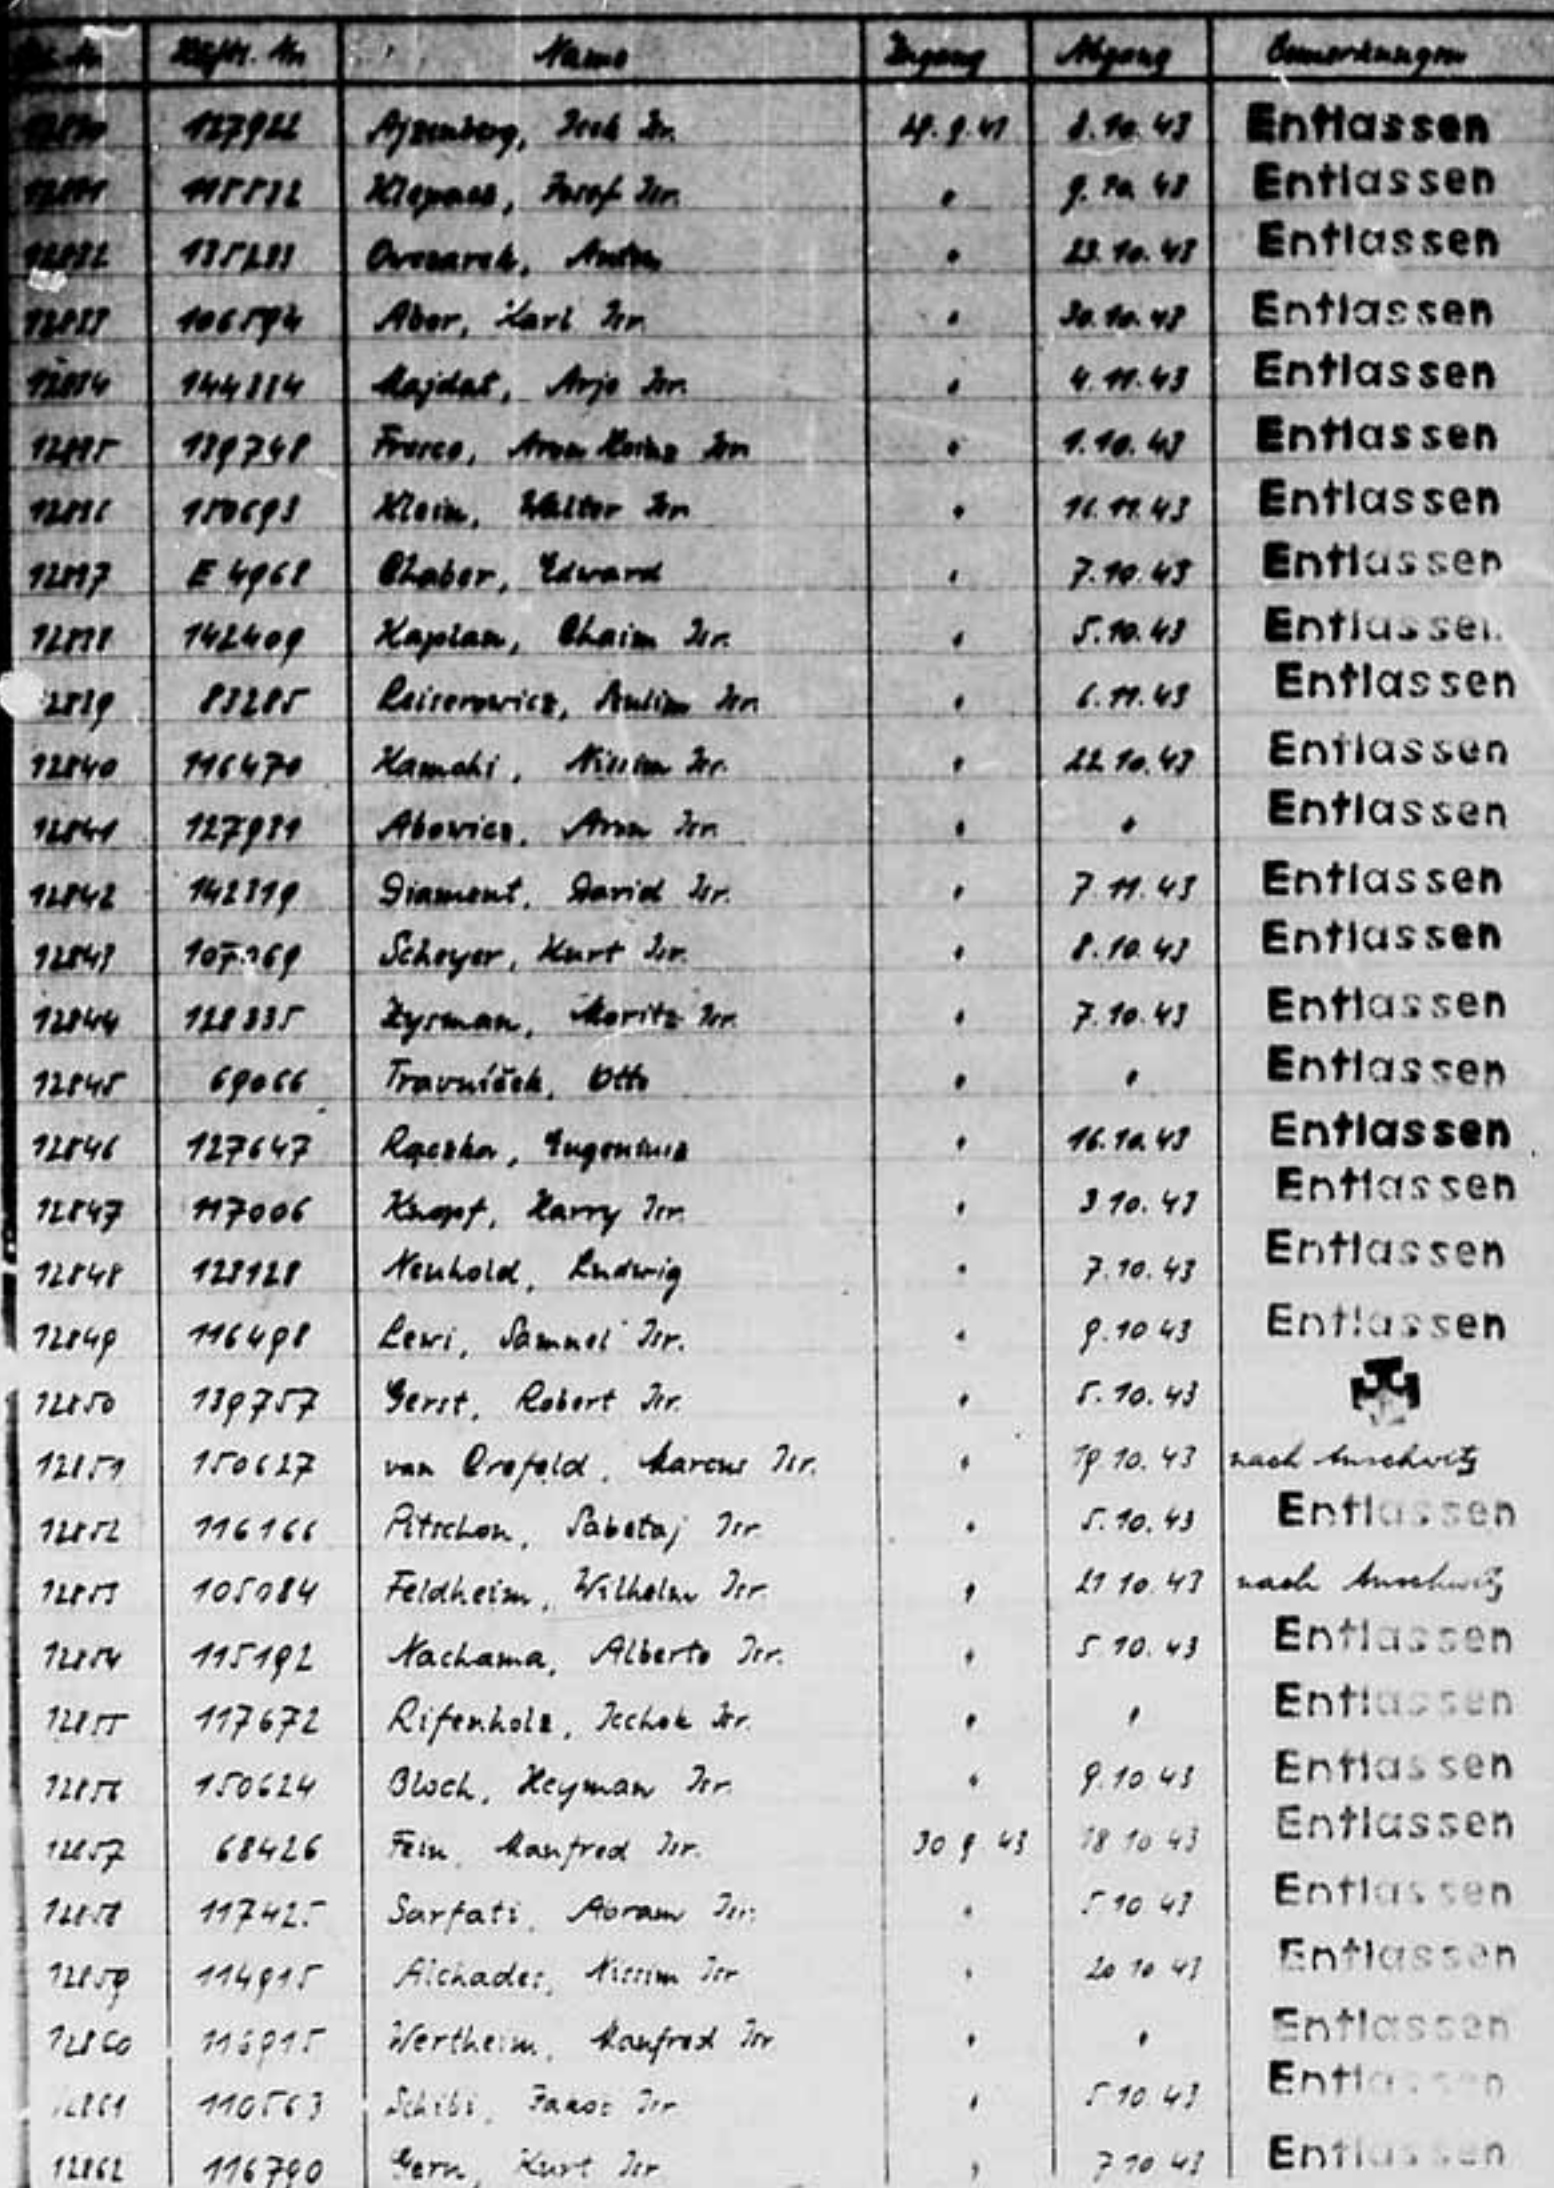 Häftl. Nr. Name Zugang Abgang Bemerkungen
127922 Ajzenberg, Isr. 8.10.43 Entlassen
Josef Isr. " 9.10.43 Entlassen
Owczarek, Anton " 23.10.43 Entlassen
12833 106594 Aber, Karl Isr. " 30.10.43 Entlassen
12834 144334 Majdat, Arje Isr. " 4.11.43 Entlassen
12835 139748 Fresco, Isr. " 1.10.43 Entlassen
12836 150693 Klein, Walter Isr. " 11.43 Entlassen
12837 E 4968 Chaber, Edward " 7.10.43 Entlassen
12838 142409 Kaplan, Chaim Isr. " 5.10.43 Entlassen
12839 83285 Leiserowicz, Isr. " 6.11.43 Entlassen
12840 116470 Kamchi, Nissim Isr. " 22.10.43 Entlassen
12841 127981 Abowicz, Aron Isr. " " Entlassen
12842 142319 Diament, David Isr. " 7.11.43 Entlassen
12843 Scheyer, Kurt Isr. " 8.10.43 Entlassen
12844 128335 Zysman, Moritz Isr. " 7.10.43 Entlassen
12845 69066 Travníček, Otto " " Entlassen
12846 127647 Raczka, Eugeniusz " 16.10.43 Entlassen
12847 117006 Knopf, Harry Isr. " 3.10.43 Entlassen
12848 128128 Neuhold, Ludwig " 7.10.43 Entlassen
12849 116498 Lewi, Samuel Isr. " 9.10.43 Entlassen
12850 139757 Gerst, Robert Isr. " 5.10.43
12851 150627 van Crefeld, Marcus Isr. " 19.10.43 nach Auschwitz
12852 116166 Pitschon, Sabetaj Isr. " 5.10.43 Entlassen
12853 105084 Feldheim, Wilhelm Isr. " 21.10.43 nach Auschwitz
12854 115192 Nachama, Alberto Isr. " 5.10.43 Entlassen
12855 117672 Rifenholz, Icchok Isr. " " Entlassen
12856 150624 Bloch, Heyman Isr. " 9.10.43 Entlassen
12857 68426 Fein, Manfred Isr. 30.9.43 18.10.43 Entlassen
12858 117425 Sarfati, Abram Isr. " 5.10.43 Entlassen
12859 114915 Alchades, Nissim Isr. " 20.10.43 Entlassen
12860 116915 Wertheim, Manfred Isr. " " Entlassen
12861 110563 Schibi, Isr. " 5.10.43 Entlassen
12862 116790 Gern, Kurt Isr. " 7.10.43 Entlassen